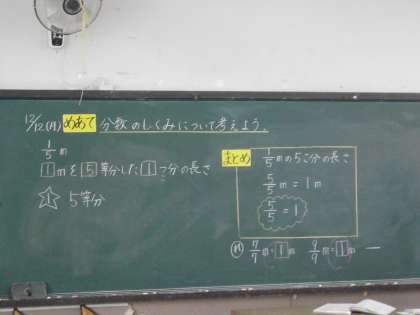 12/12(月) めあて 分数のしくみについて考えよう。
1/5 m
1mを5等分した1つ分の長さ
1 5等分
まとめ
1/5 mの5こ分の長さ
5/5 m = 1m
5/5 = 1
7/7 m = 1m 9/9 m = 1m